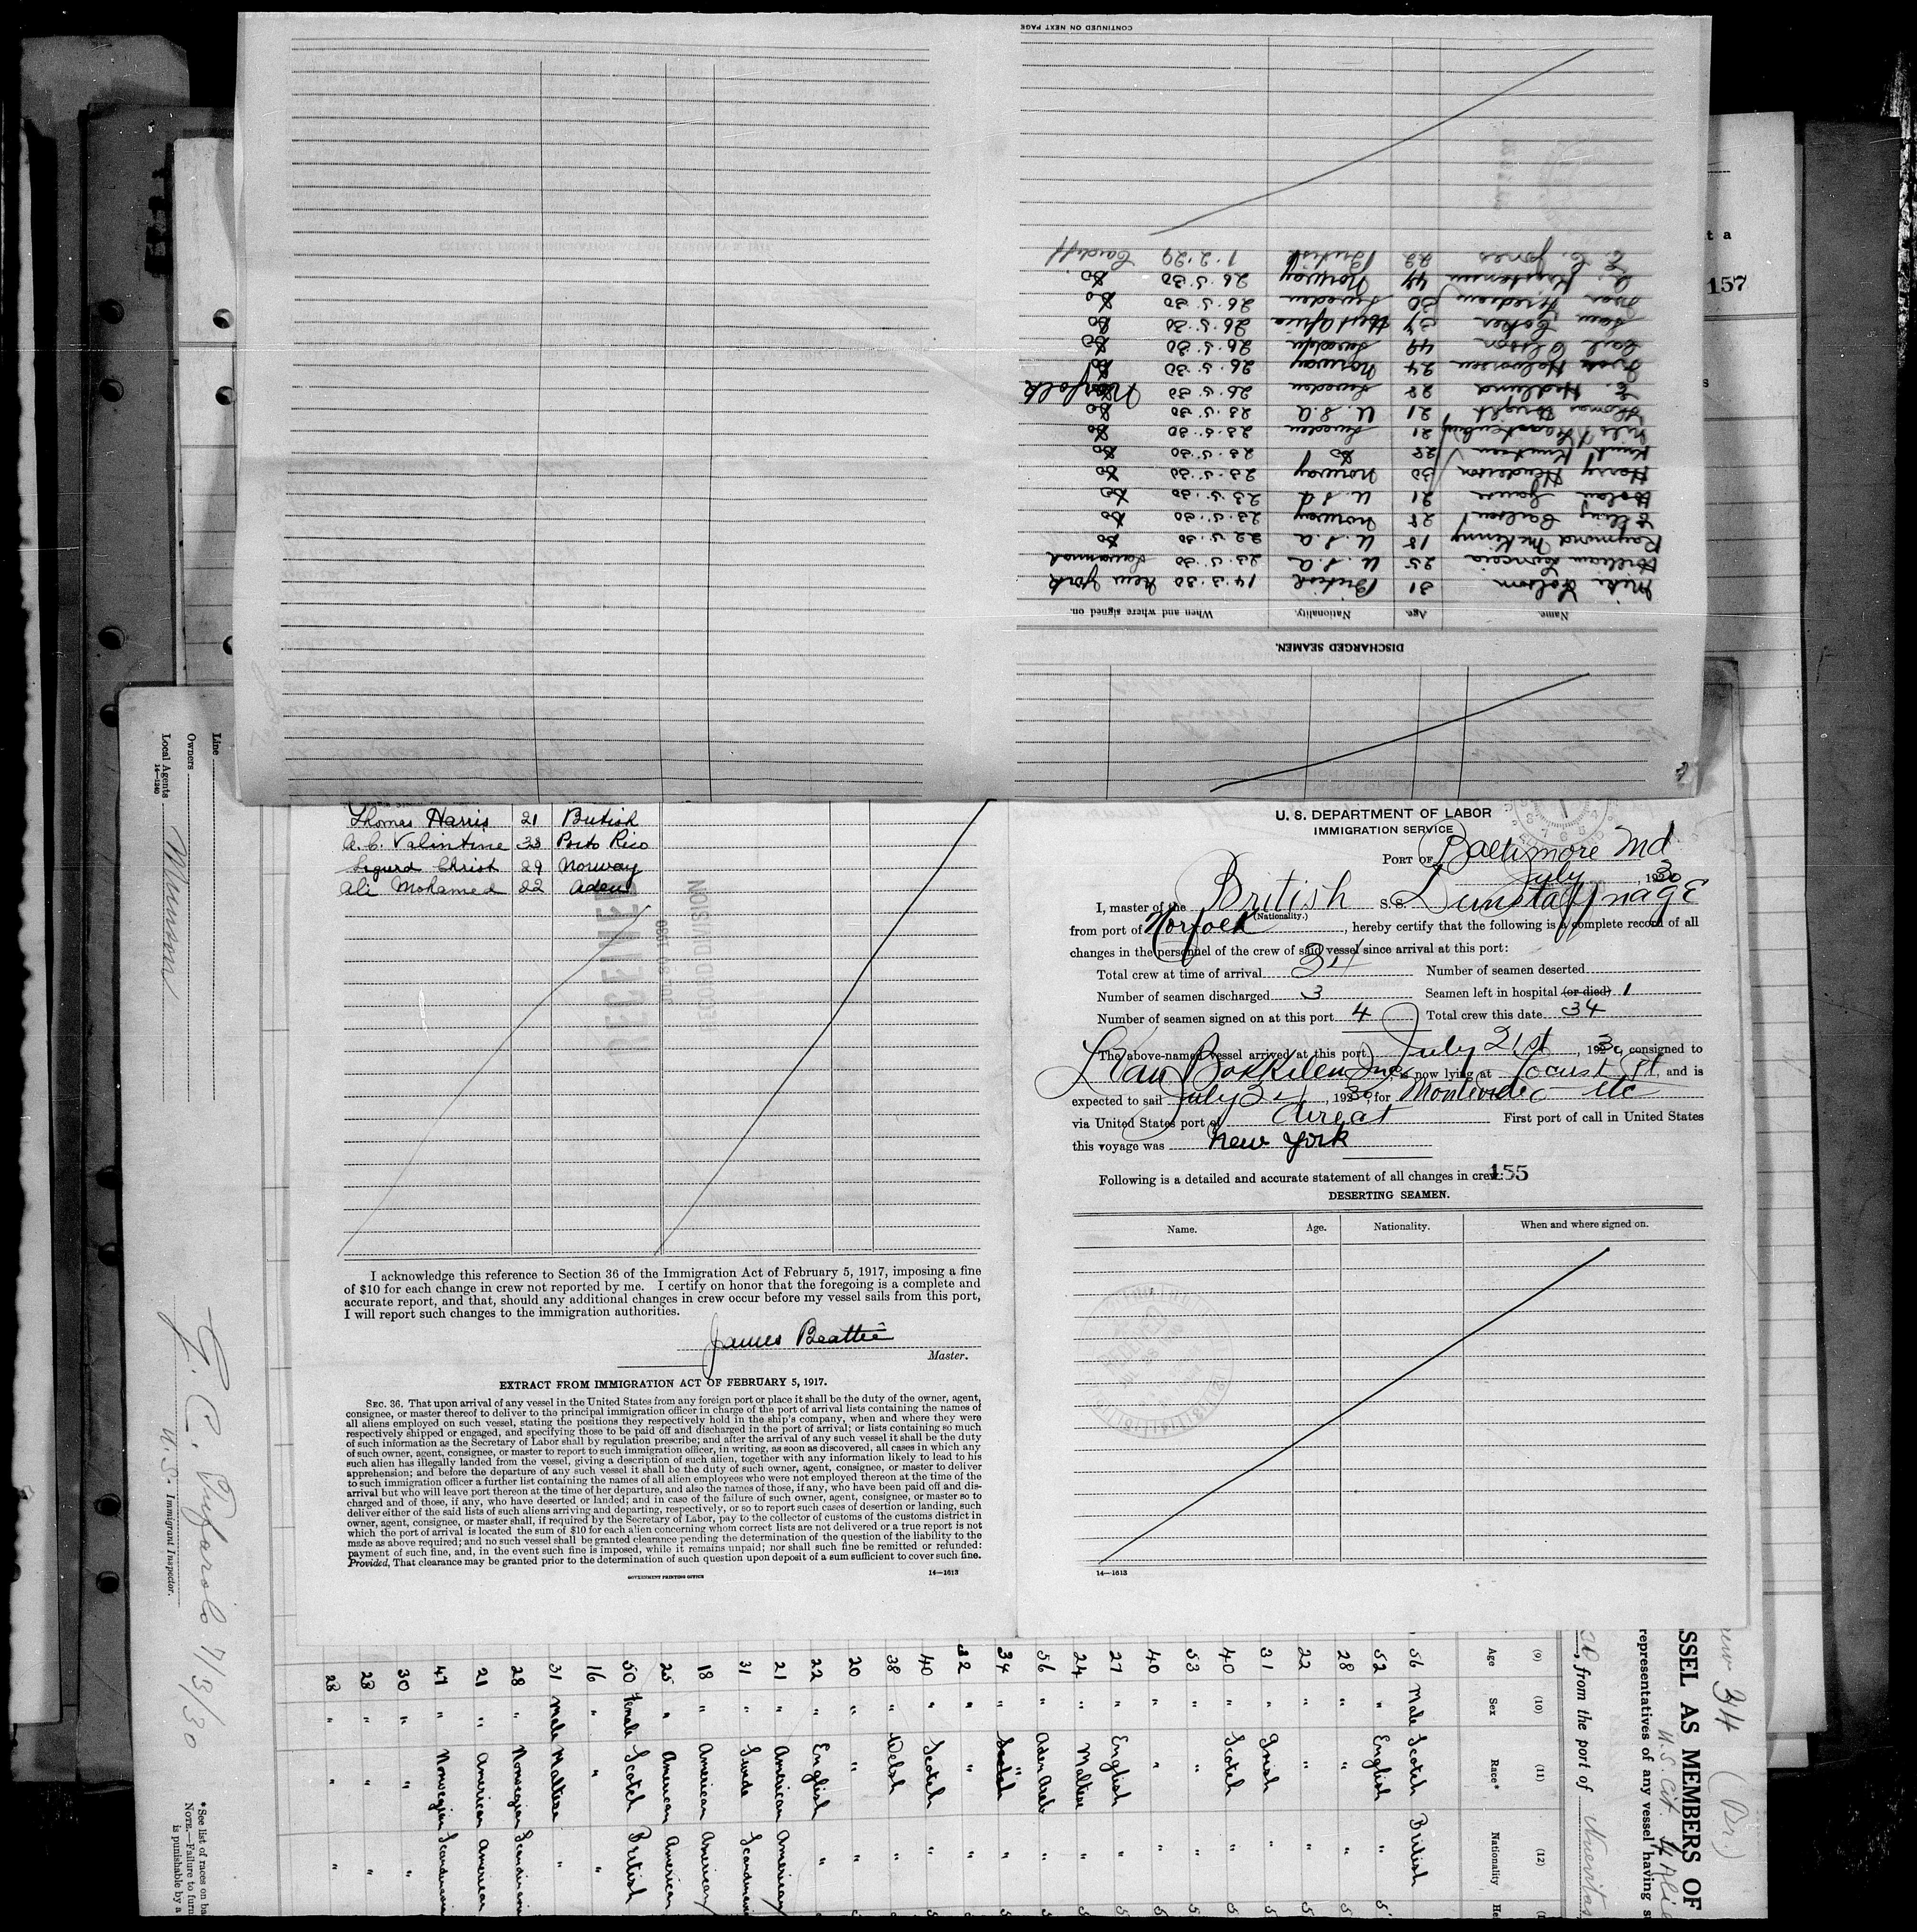 CONTINUED ON NEXT PAGE
DISCHARGED SEAMEN.
Name. Age. Nationality. When and where signed on.
31 British 14.3.30 New York
William 25 U.S.A 23.5.30 Savannah
Raymond McKinny 18 U.S.A. 22.5.30 do
28 Norway 23.5.30 do
21 U.S.A 23.5.30 do
Harry Henderson 30 Norway 23.5.30 do
Knut Knutsen 28 do 23.5.30 do
Nils 21 Sweden 23.5.30 do
Thomas Wright 21 U.S.A 23.5.30 do
E. Hedlund 28 Sweden 26.5.30 Norfolk
Halvorsen 24 Norway 26.5.30 do
Carl Olsson 49 Sweden 26.5.30 do
Sam Coker 34 West Africa 26.5.30 do
30 Sweden 26.5.30 do
44 Norway 26.5.30 do
E. C. Jones 22 British 1.2.29 Cardiff
157
Thomas Harris 21 British
A. C. Valintine 33 Porto Rico
Sigurd Christ 29 Norway
Ali Mohamed 22 Aden
RECEIVED
RECORD DIVISION
I acknowledge this reference to Section 36 of the Immigration Act of February 5, 1917, imposing a fine
of $10 for each change in crew not reported by me. I certify on honor that the foregoing is a complete and
accurate report, and that, should any additional changes in crew occur before my vessel sails from this port,
I will report such changes to the immigration authorities.
James Beattie
Master.
EXTRACT FROM IMMIGRATION ACT OF FEBRUARY 5, 1917.
SEC. 36. That upon arrival of any vessel in the United States from any foreign port or place it shall be the duty of the owner, agent,
consignee, or master thereof to deliver to the principal immigration officer in charge of the port of arrival lists containing the names of
all aliens employed on such vessel, stating the positions they respectively hold in the ship's company, when and where they were
respectively shipped or engaged, and specifying those to be paid off and discharged in the port of arrival; or lists containing so much
of such information as the Secretary of Labor shall by regulation prescribe; and after the arrival of any such vessel it shall be the duty
of such owner, agent, consignee, or master to report to such immigration officer, in writing, as soon as discovered, all cases in which any
such alien has illegally landed from the vessel, giving a description of such alien, together with any information likely to lead to his
apprehension; and before the departure of any such vessel it shall be the duty of such owner, agent, consignee, or master to deliver
to such immigration officer a further list containing the names of all alien employees who were not employed thereon at the time of the
arrival but who will leave port thereon at the time of her departure, and also the names of those, if any, who have been paid off and dis-
charged and of those, if any, who have deserted or landed; and in case of the failure of such owner, agent, consignee, or master so to
deliver either of the said lists of such aliens arriving and departing, respectively, or so to report such cases of desertion or landing, such
owner, agent, consignee, or master shall, if required by the Secretary of Labor, pay to the collector of customs of the customs district in
which the port of arrival is located the sum of $10 for each alien concerning whom correct lists are not delivered or a true report is not
made as above required; and no such vessel shall be granted clearance pending the determination of the question of the liability to the
payment of such fine, and, in the event such fine is imposed, while it remains unpaid; nor shall such fine be remitted or refunded:
Provided, That clearance may be granted prior to the determination of such question upon deposit of a sum sufficient to cover such fine.
GOVERNMENT PRINTING OFFICE 14—1613
U. S. DEPARTMENT OF LABOR
IMMIGRATION SERVICE
PORT OF Baltimore Md
July , 1930
I, master of the British S.S. Dunstaffnage
(Nationality.)
from port of Norfolk , hereby certify that the following is a complete record of all
changes in the personnel of the crew of said vessel since arrival at this port:
Total crew at time of arrival 34 Number of seamen deserted
Number of seamen discharged 3 Seamen left in hospital (or died) 1
Number of seamen signed on at this port 4 Total crew this date 34
The above-named vessel arrived at this port July 21st , 1930, consigned to
Inc , is now lying at Locust Pt and is
expected to sail July 24 , 1930, for Montevideo etc
via United States port of direct First port of call in United States
this voyage was New York
Following is a detailed and accurate statement of all changes in crew:
155
DESERTING SEAMEN.
Name. Age. Nationality. When and where signed on.
14—1613
Line
Owners Munson
Local Agents
14—1240
7/3/30
U. S. Immigrant Inspector.
*See list of races on ba
NOTE.—Failure to furn
is punishable by a
crew 34 (Br.)
U.S. Cit. 4
SSEL AS MEMBERS OF
representatives of any vessel having
, from the port of Nuevitas
(9) (10) (11) (12)
Age Sex Race* Nationality
56 Male Scotch British
52 " English "
28 " " "
22 " " "
31 " Irish "
40 " Scotch "
53 " " "
40 " " "
27 " English "
24 " Maltese "
56 " Aden Arab "
34 " " "
32 " " "
40 " Scotch "
38 " Welsh "
20 " " "
22 " English "
21 " American American
31 " Swede Scandinavian
18 " American American
25 " American American
50 Female Scotch British
16 " " "
31 Male Maltese "
28 " Norwegian Scandinavian
21 " American American
47 " Norwegian Scandinavian
30 " " "
23 " " "
28 " " "